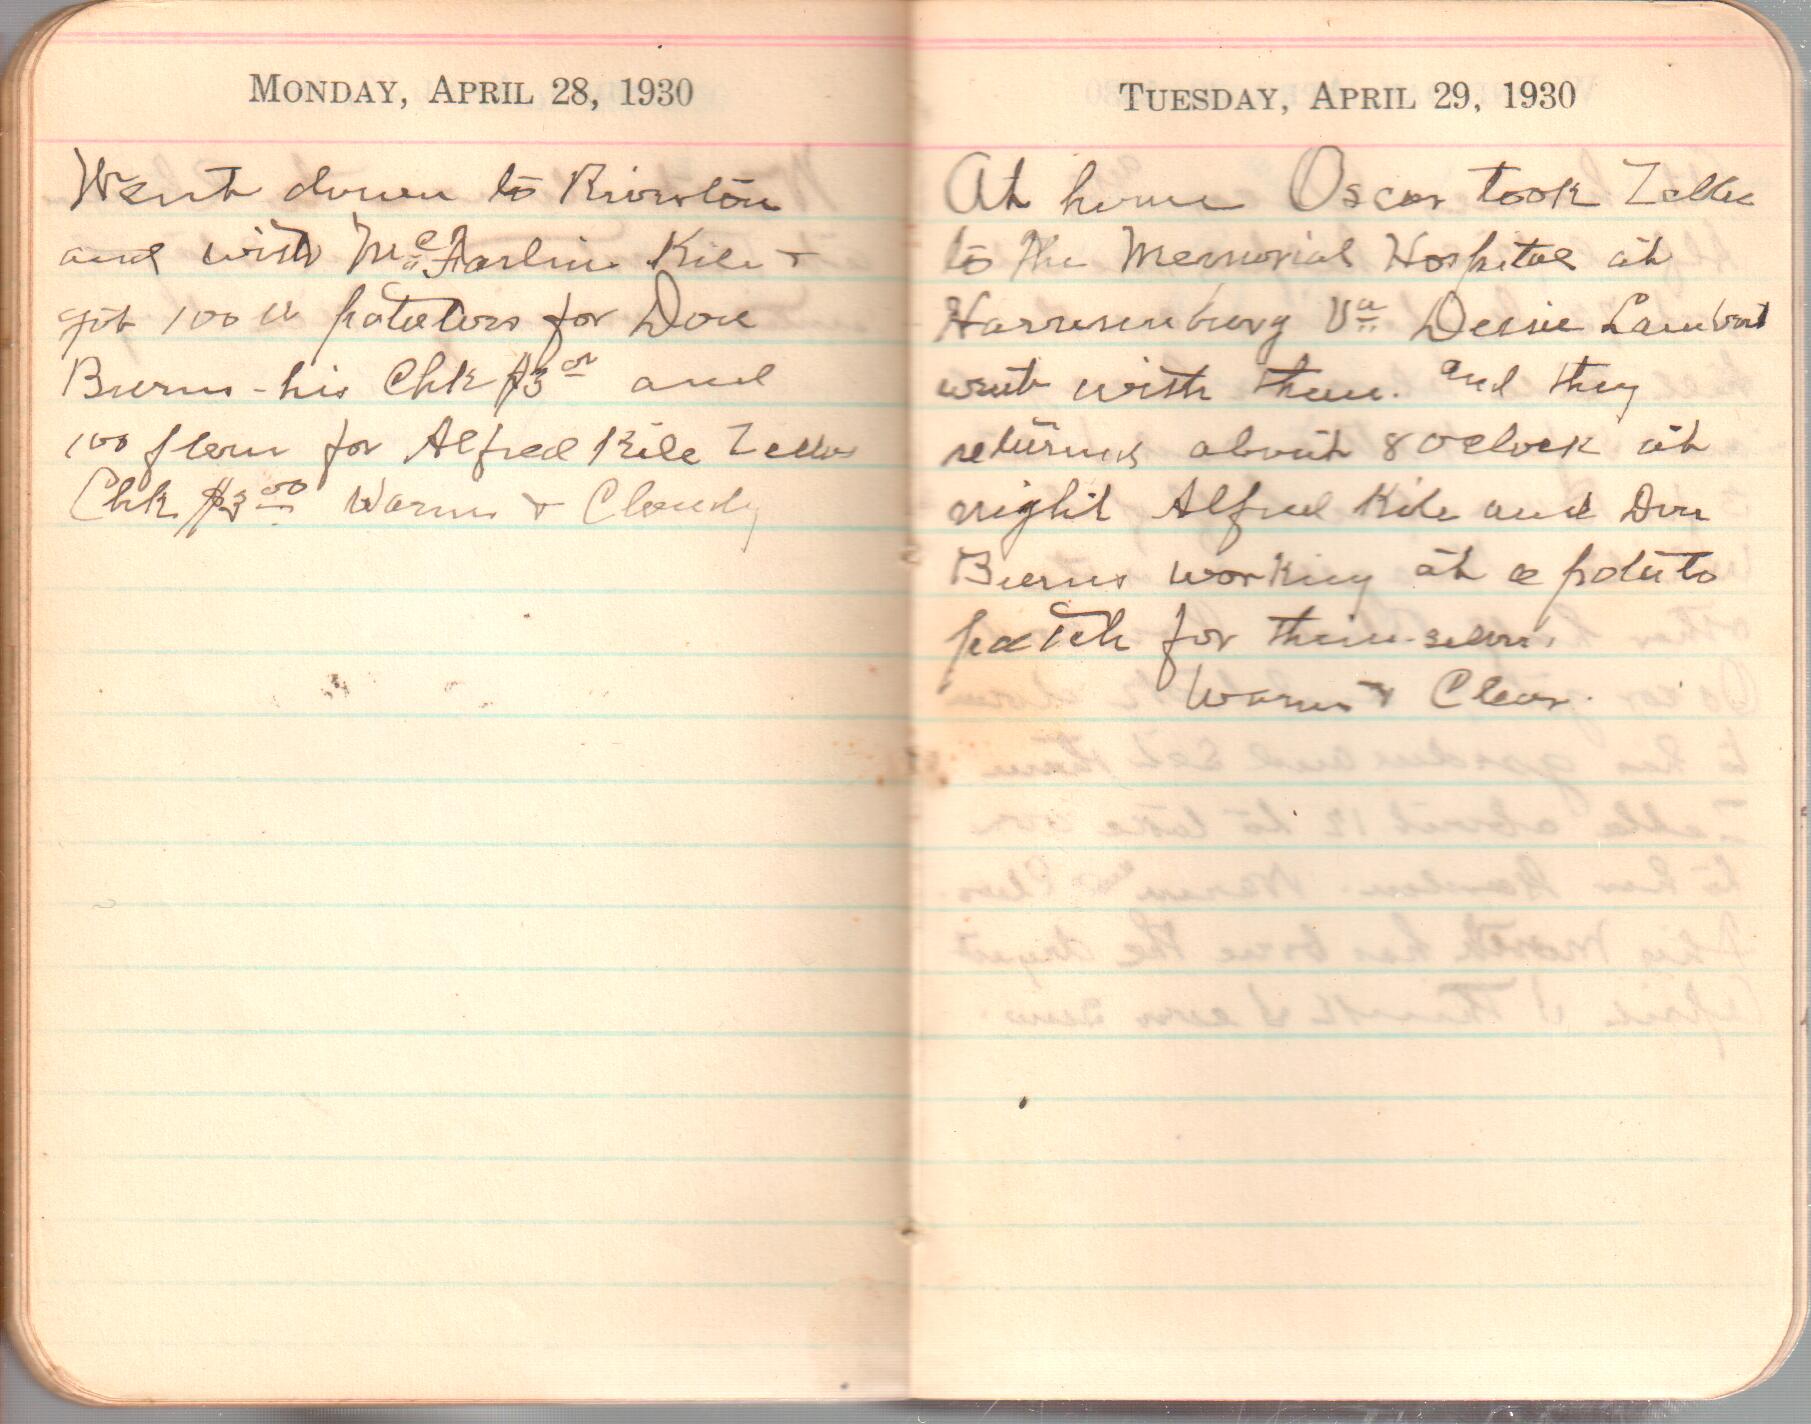 MONDAY, APRIL 28, 1930
Went down to Riverton
and with McFarlin Kile +
got 100 lb potatoes for Don
Burns - his Chk $3.00 and
100 flour for Alfred Kile Zellas
Chk $3.00 Warm + Cloudy
TUESDAY, APRIL 29, 1930
At home Oscar took Zella
to the Memorial Hospital at
Harrisonburg Va Dessie Lambert
went with them. and they
returned about 8 oclock at
night Alfred Kile and Don
Burns working at a potato
patch for them-selves.
Warm + Clear.